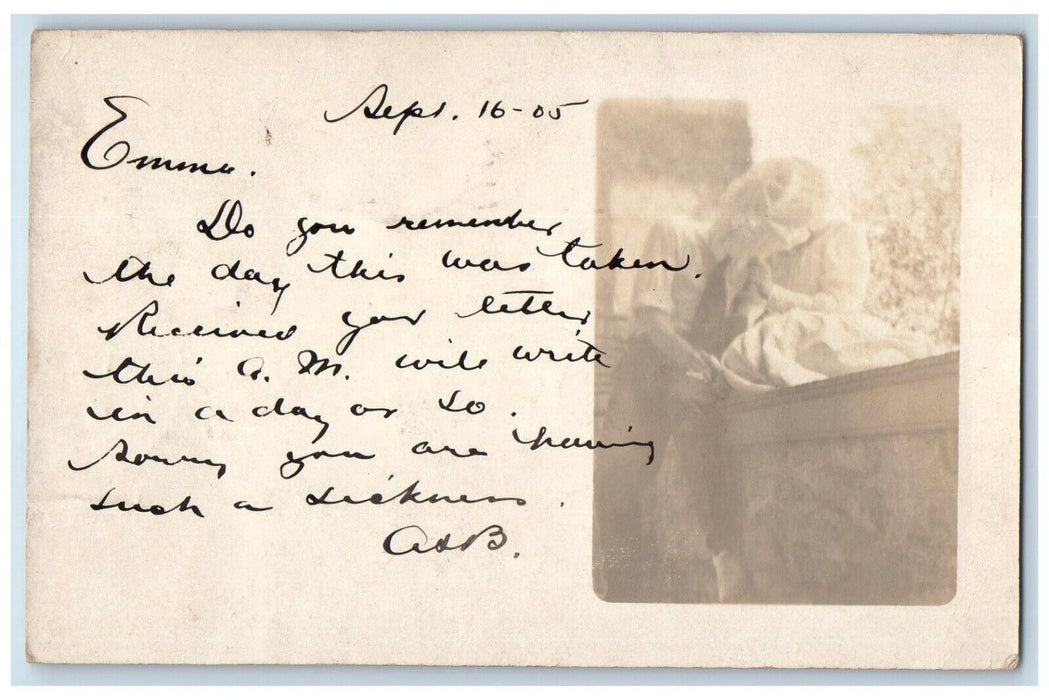 Sept. 16-05
Emma.
Do you remember
the day this was taken.
Received your letter
this A.M. will write
in a day or so.
Sorry you are having
such a sickness.
ASB.